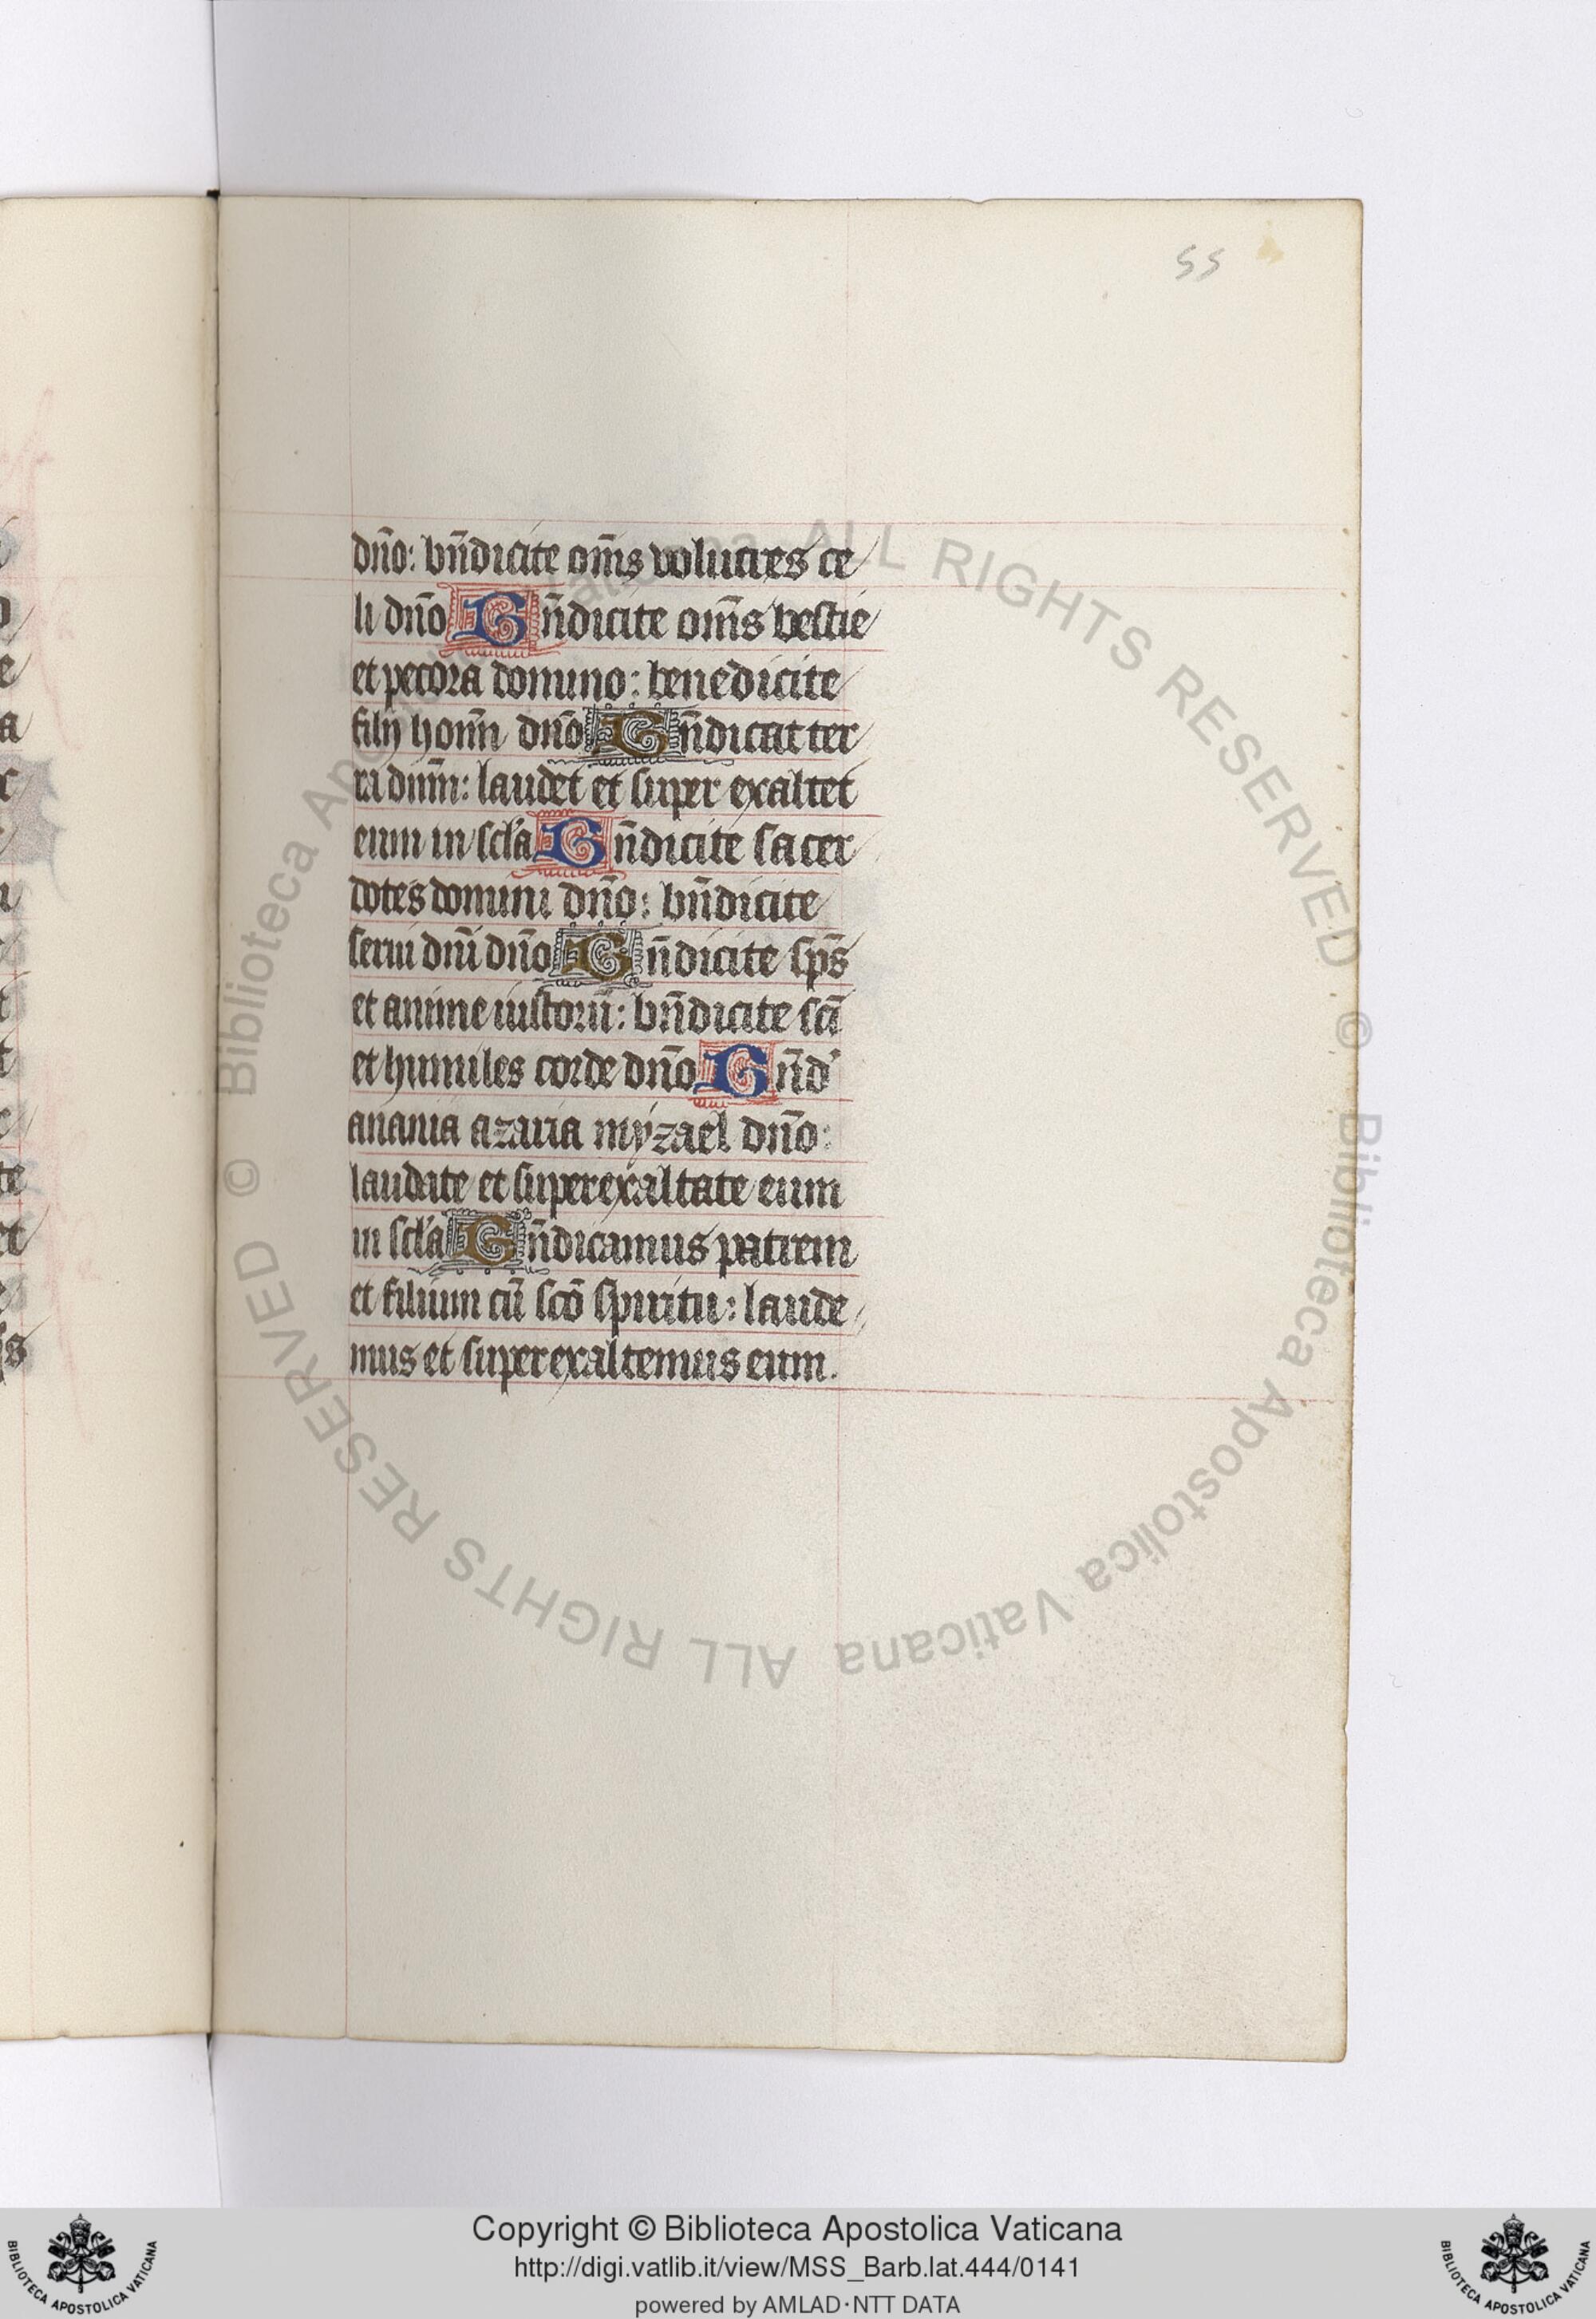 55
dn̄o: bn̄dicite om̄s volucres ce
li dn̄o Bn̄dicite om̄s bestie
et pecora domino: benedicite
filij homī dn̄o Bn̄dicat ter
ra dnm̄: laudet et super exaltet
eum in scl̄a Bn̄dicite sacer
dotes domini dn̄o: bn̄dicite
serui dnī dn̄o Bn̄dicite sp̄s
et anime iustorū: bn̄dicite scī
et humiles corde dn̄o Bn̄d'
anania azaria myzael dn̄o:
laudate et superexaltate eum
in scl̄a Bn̄dicamus patrem
et filium cū scō spiritu: laude
mus et superexaltemus eum.
© Biblioteca Apostolica Vaticana ALL RIGHTS RESERVED
© Biblioteca Apostolica Vaticana ALL RIGHTS RESERVED
Copyright © Biblioteca Apostolica Vaticana
http://digi.vatlib.it/view/MSS_Barb.lat.444/0141
powered by AMLAD·NTT DATA
BIBLIOTECA APOSTOLICA VATICANA
BIBLIOTECA APOSTOLICA VATICANA